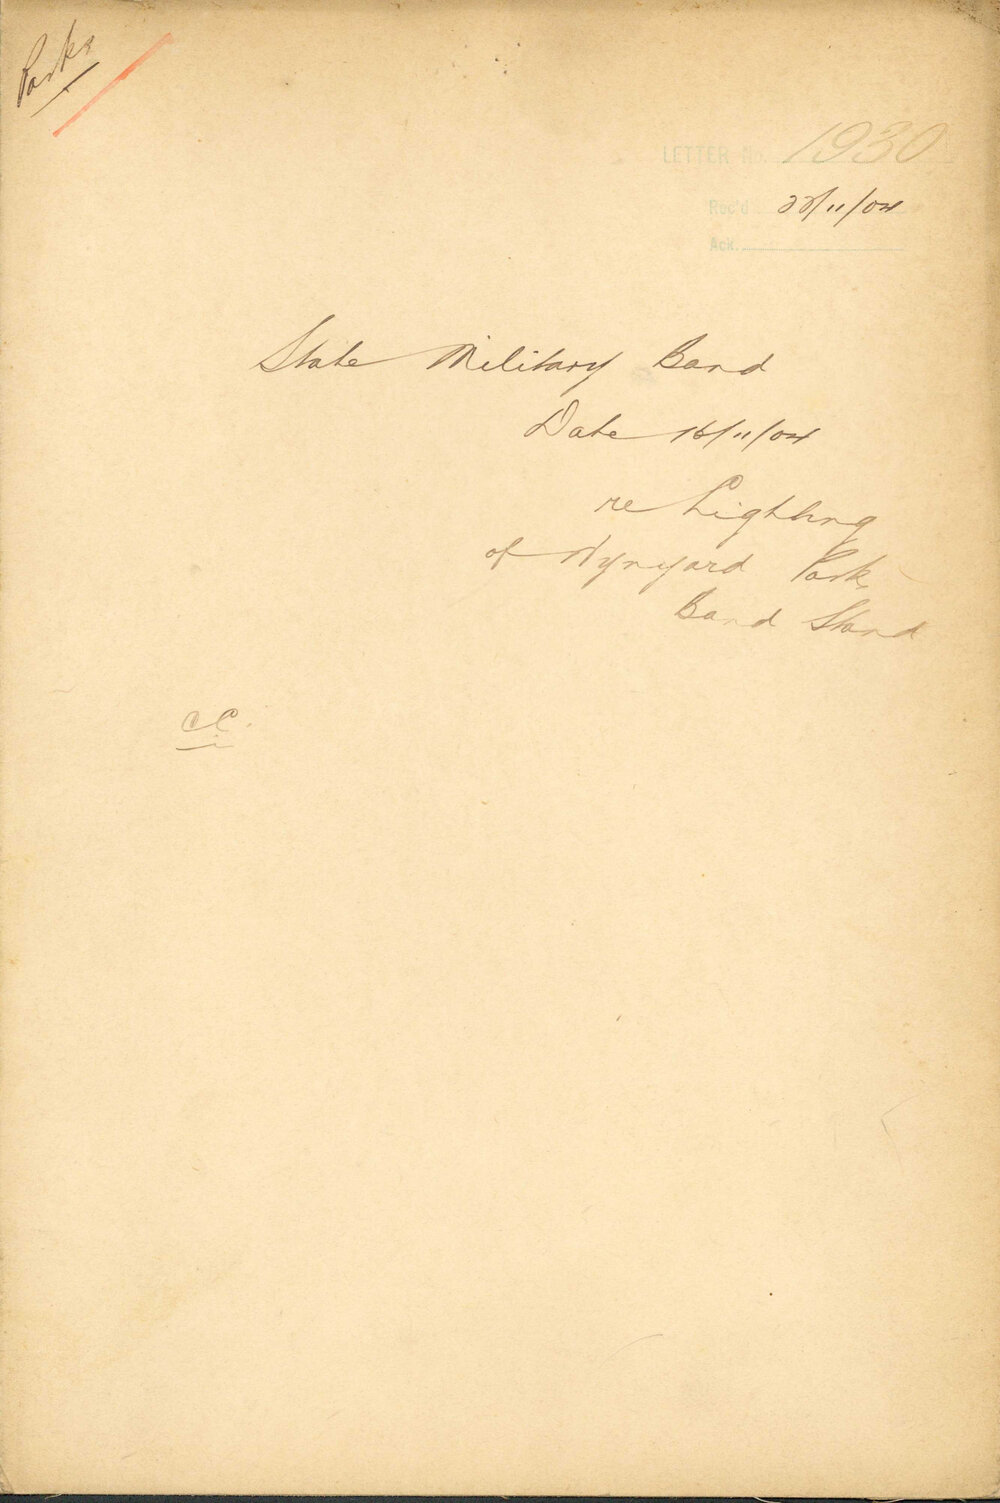 Parks
LETTER No. 1930
Rec'd 22/11/04
Ack.
State Military Band
Date 16/11/04
re Lighting
of Wynyard Park
Band Stand